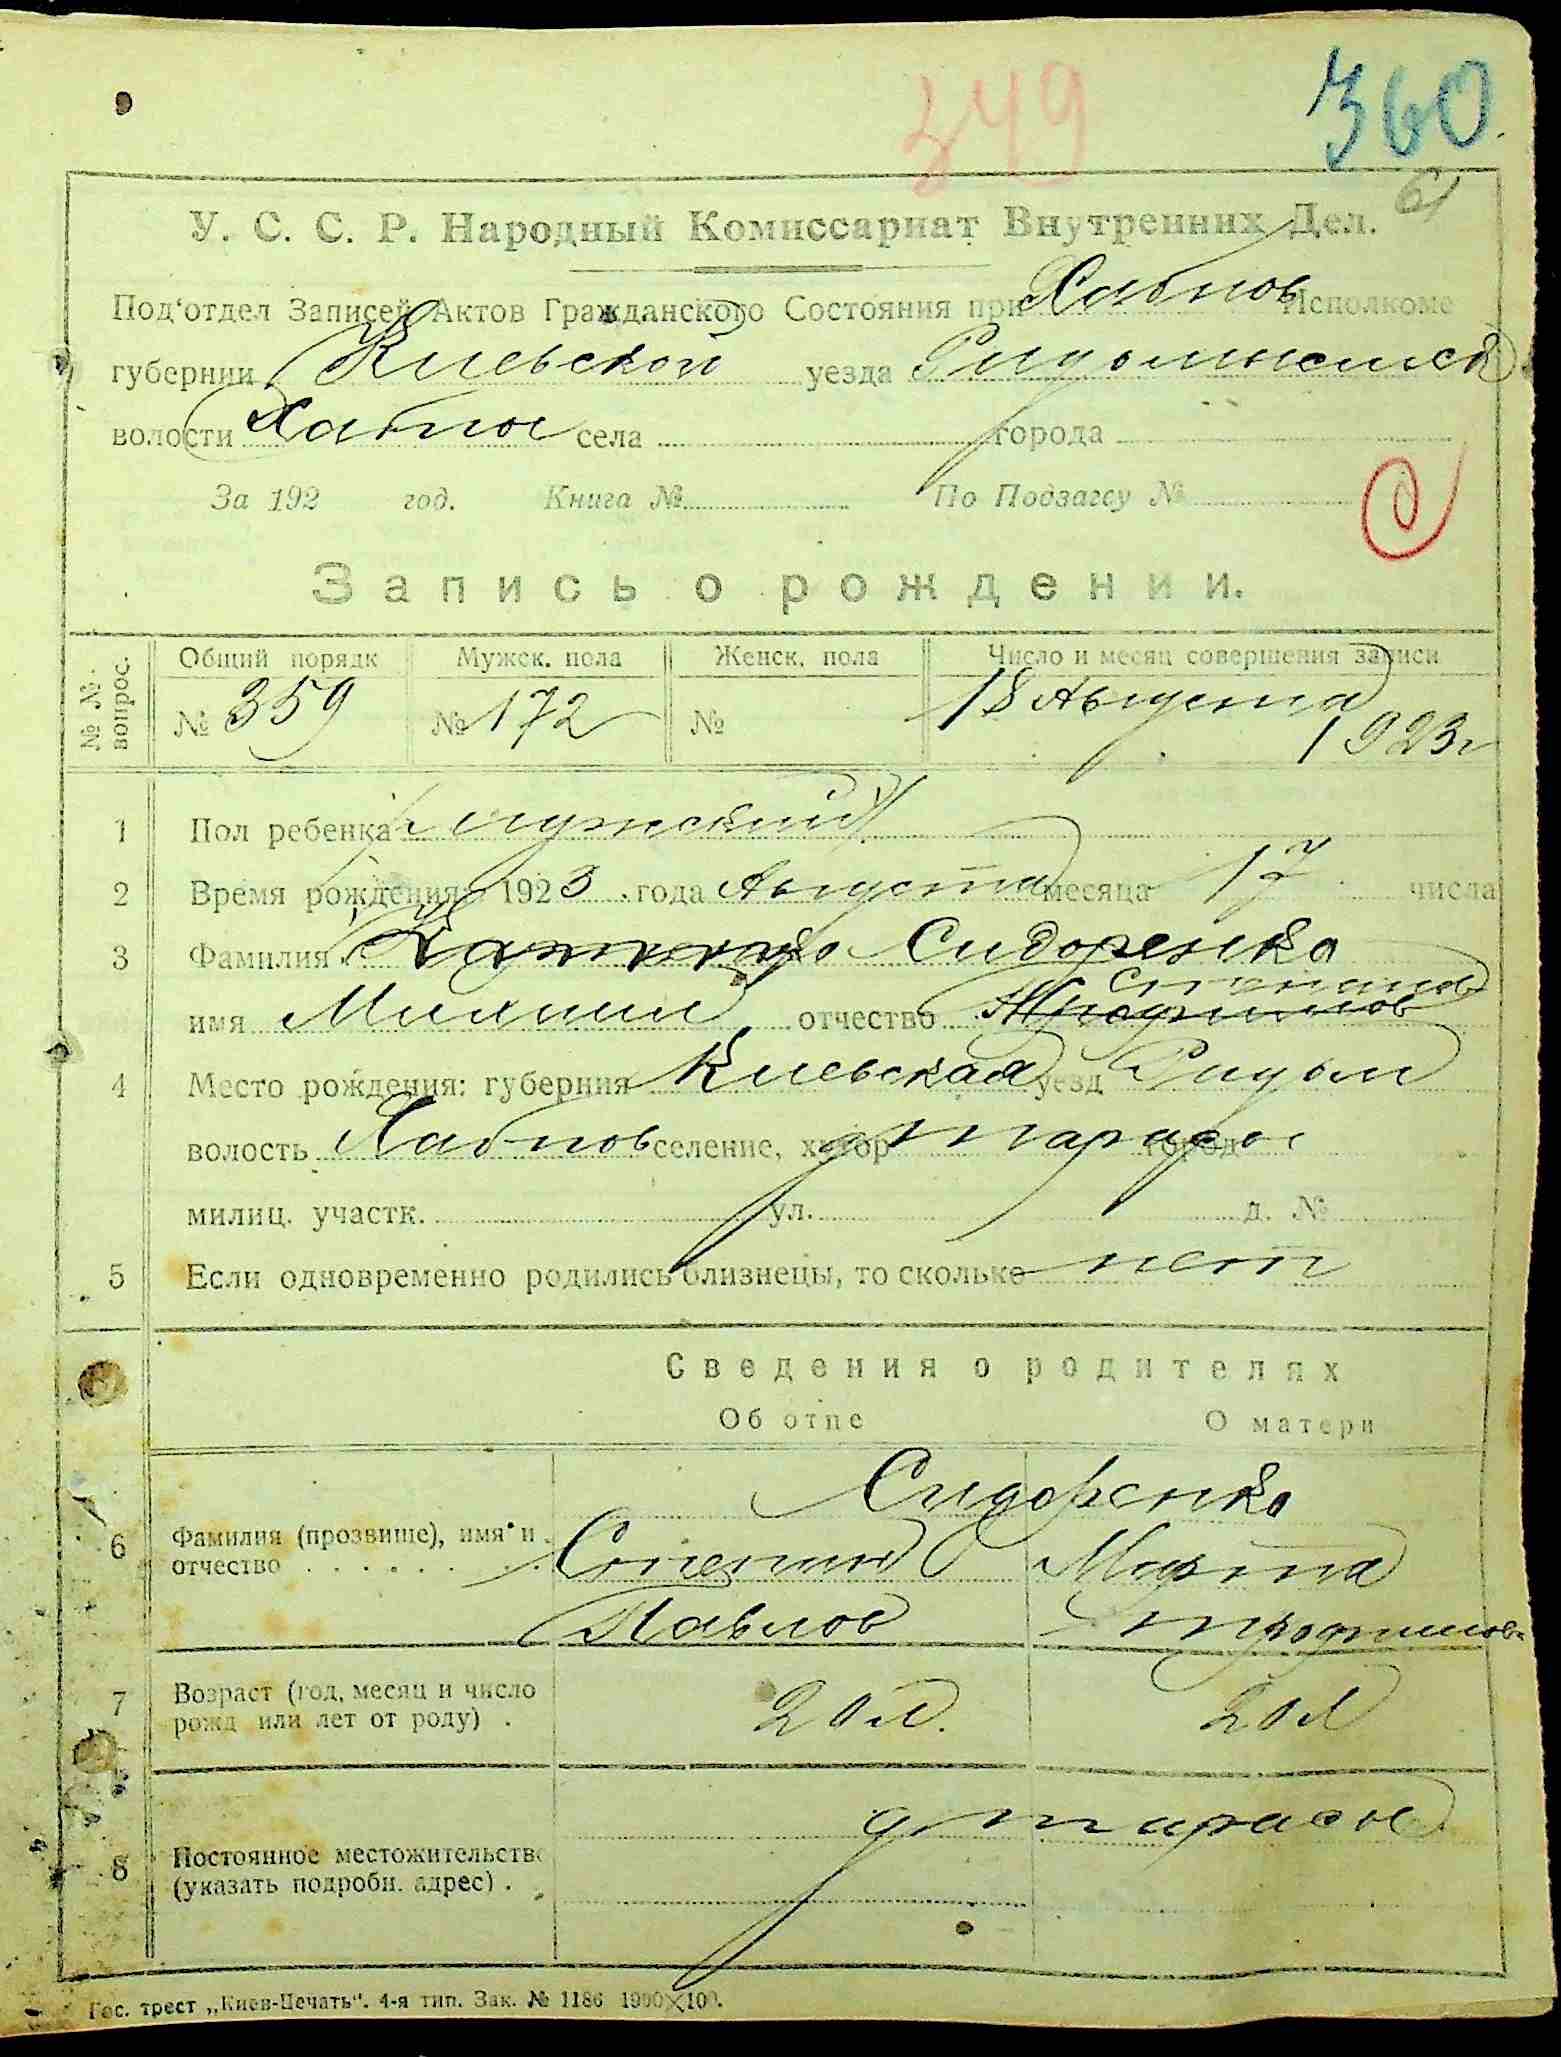 349
360
61
У. С. С. Р. Народный Комиссариат Внутренних Дел.
Под‘отдел Записей Актов Гражданского Состояния при Хабнов Исполкоме
губернии Киевской уезда
волости Хабное села города
За 192 год. Книга № По Подзагсу №
Запись о рождении.
№ №. вопрос.
Общий порядк Мужск. пола Женск. пола Число и месяц совершения записи
№ 359 № 172 № 18 Августа
1923 г
1 Пол ребенка мужской
2 Время рождения: 1923 года Августа месяца 17 числа
3 Фамилия Сидоренко
Степанов
имя Михаил отчество Трофимов
4 Место рождения: губерния Киевская уезд Радом
волость Хабнов селение, хутор д Тарасы город
милиц. участк. ул. д. №
5 Если одновременно родились близнецы, то сколько нет
Сведения о родителях
Об отце О матери
Сидоренко
6 Фамилия (прозвище), имя и Степан Марта
отчество Павлов Трофимов
7 Возраст (год, месяц и число
рожд или лет от роду) . 20 л. 20 л
д Тарасы
8 Постоянное местожительство
(указать подробн. адрес) .
Гос. трест „Киев-Печать“. 4-я тип. Зак. № 1186 1000×100.